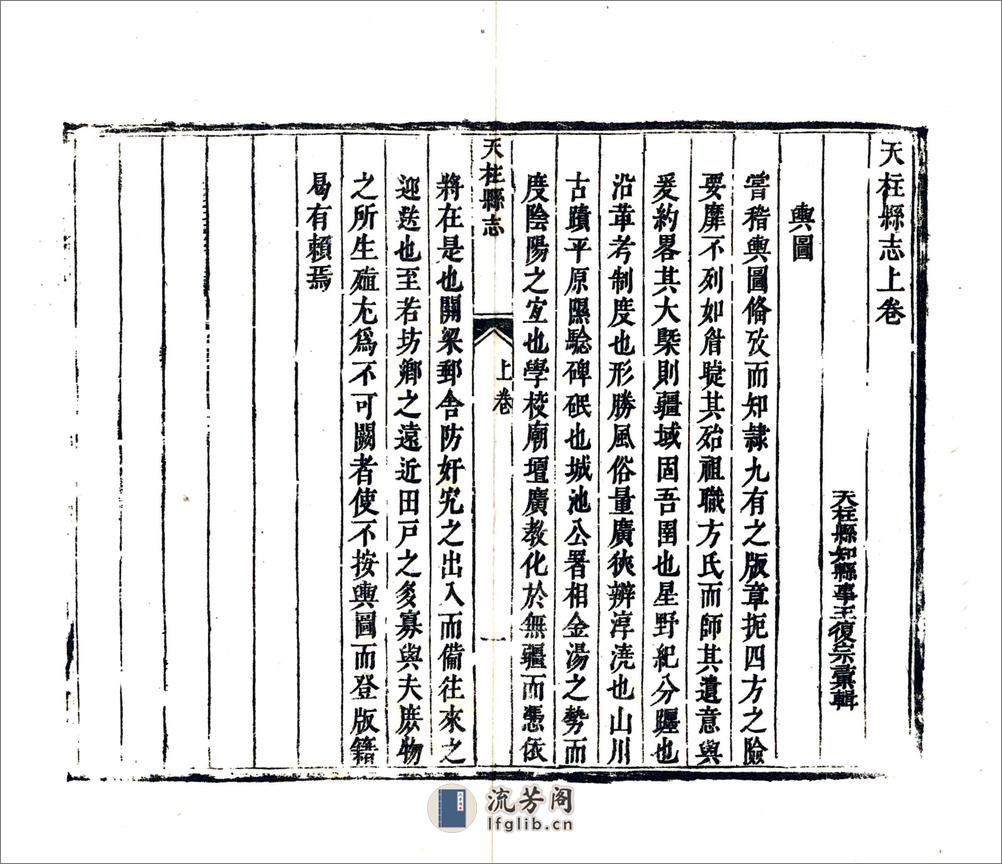 天柱縣志上卷
天柱縣知縣事王復宗彙輯
輿圖
嘗稽輿圖俻攷而知隷九有之版章扼四方之險
要靡不列如眉睫其殆祖職方氏而師其遺意與
爰約畧其大槩則疆域固吾圉也星野紀分躔也
沿革考制度也形勝風俗量廣狹辨淳澆也山川
古蹟平原隰驗碑砇也城池公署相金湯之勢而
度陰陽之宜也學校廟壇廣教化於無疆而憑依
將在是也關梁郵舍防奸宄之出入而俻往來之
迎送也至若坊鄉之遠近田戶之多寡與夫庶物
之所生殖尤爲不可闕者使不按輿圖而登版籍
曷有賴焉
天柱縣志
上卷
一
流芳阁
lfglib.cn